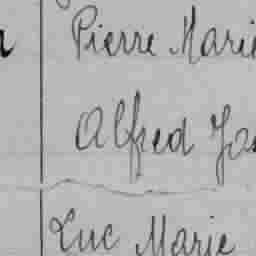 Pierre Marie
Alfred
Luc Marie